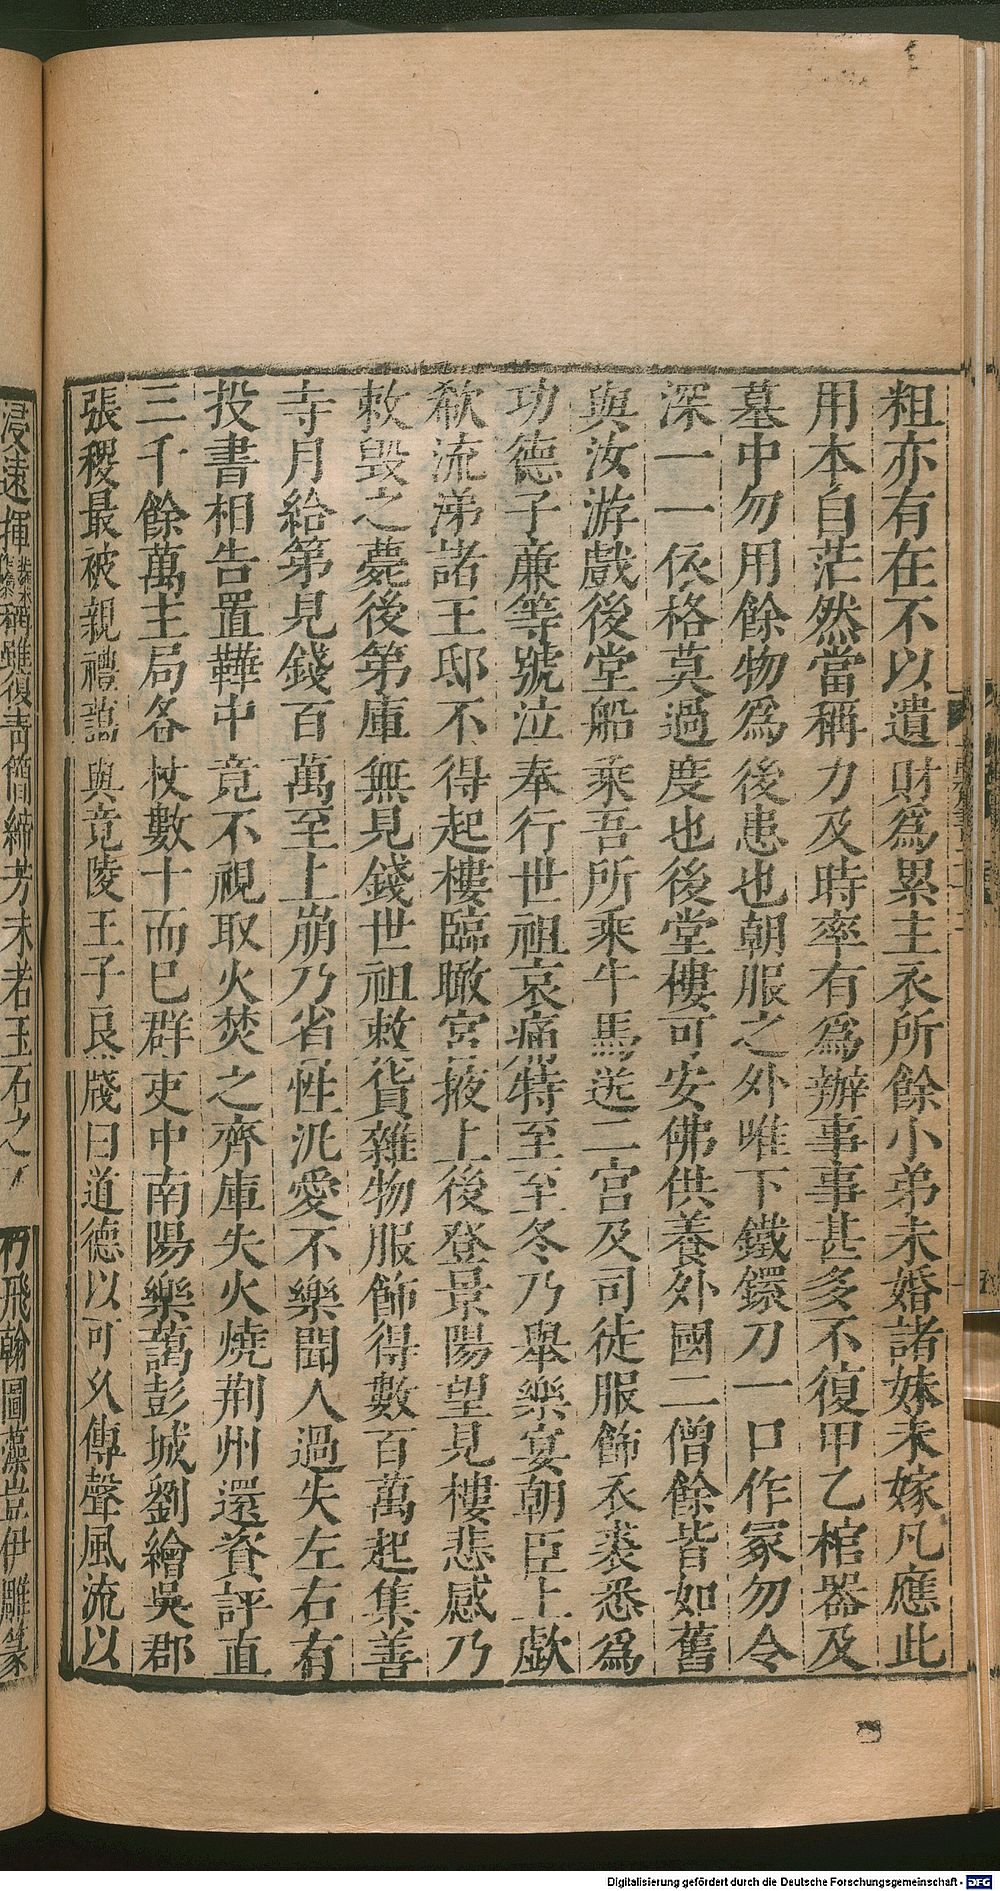 粗亦有在不以遺財爲累主衣所餘小弟未婚諸妹未嫁凡應此
用本自茫然當稱力及時率有爲辦事事甚多不復甲乙棺器及
墓中勿用餘物爲後患也朝服之外唯下鐵鐶刀一口作冢勿令
深一一依格莫過度也後堂樓可安佛供養外國二僧餘皆如舊
與汝游戲後堂船乘吾所乘牛馬送二宮及司徒服飾衣裘悉爲
功德子廉等號泣奉行世祖哀痛特至至冬乃舉樂宴朝臣上歔
欷流涕諸王邸不得起樓臨瞰宮掖上後登景陽望見樓悲感乃
敕毀之薨後第庫無見錢世祖敕貨雜物服飾得數百萬起集善
寺月給第見錢百萬至上崩乃省性汎愛不樂聞人過失左右有
投書相告置鞾中竟不視取火焚之齊庫失火燒荆州還資評直
三千餘萬主局各杖數十而已群吏中南陽樂藹彭城劉繪吳郡
張稷最被親禮藹與竟陵王子良牋曰道德以可久傳聲風流以
浸遠揮稱雖復青簡締芳未若玉石之不朽飛翰圖藻豈伊雕篆
Digitalisierung gefördert durch die Deutsche Forschungsgemeinschaft - DFG